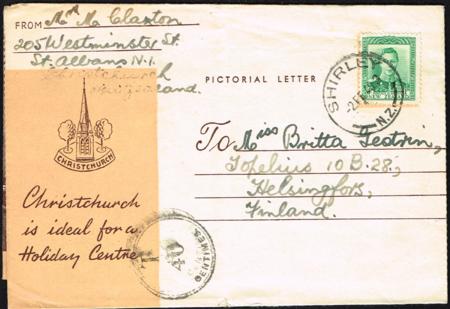 FROM Mr M. Claxton
205 Westminster St.
St. Albans N.1.
Christchurch
New Zealand.
PICTORIAL LETTER
SHIRLEY
N.Z.
To Miss Britta Tedrin,
Topelius 10 B. 28,
Helsingfors,
Finland.
CHRISTCHURCH
Christchurch
is ideal for a
Holiday Centre
CENTIMES